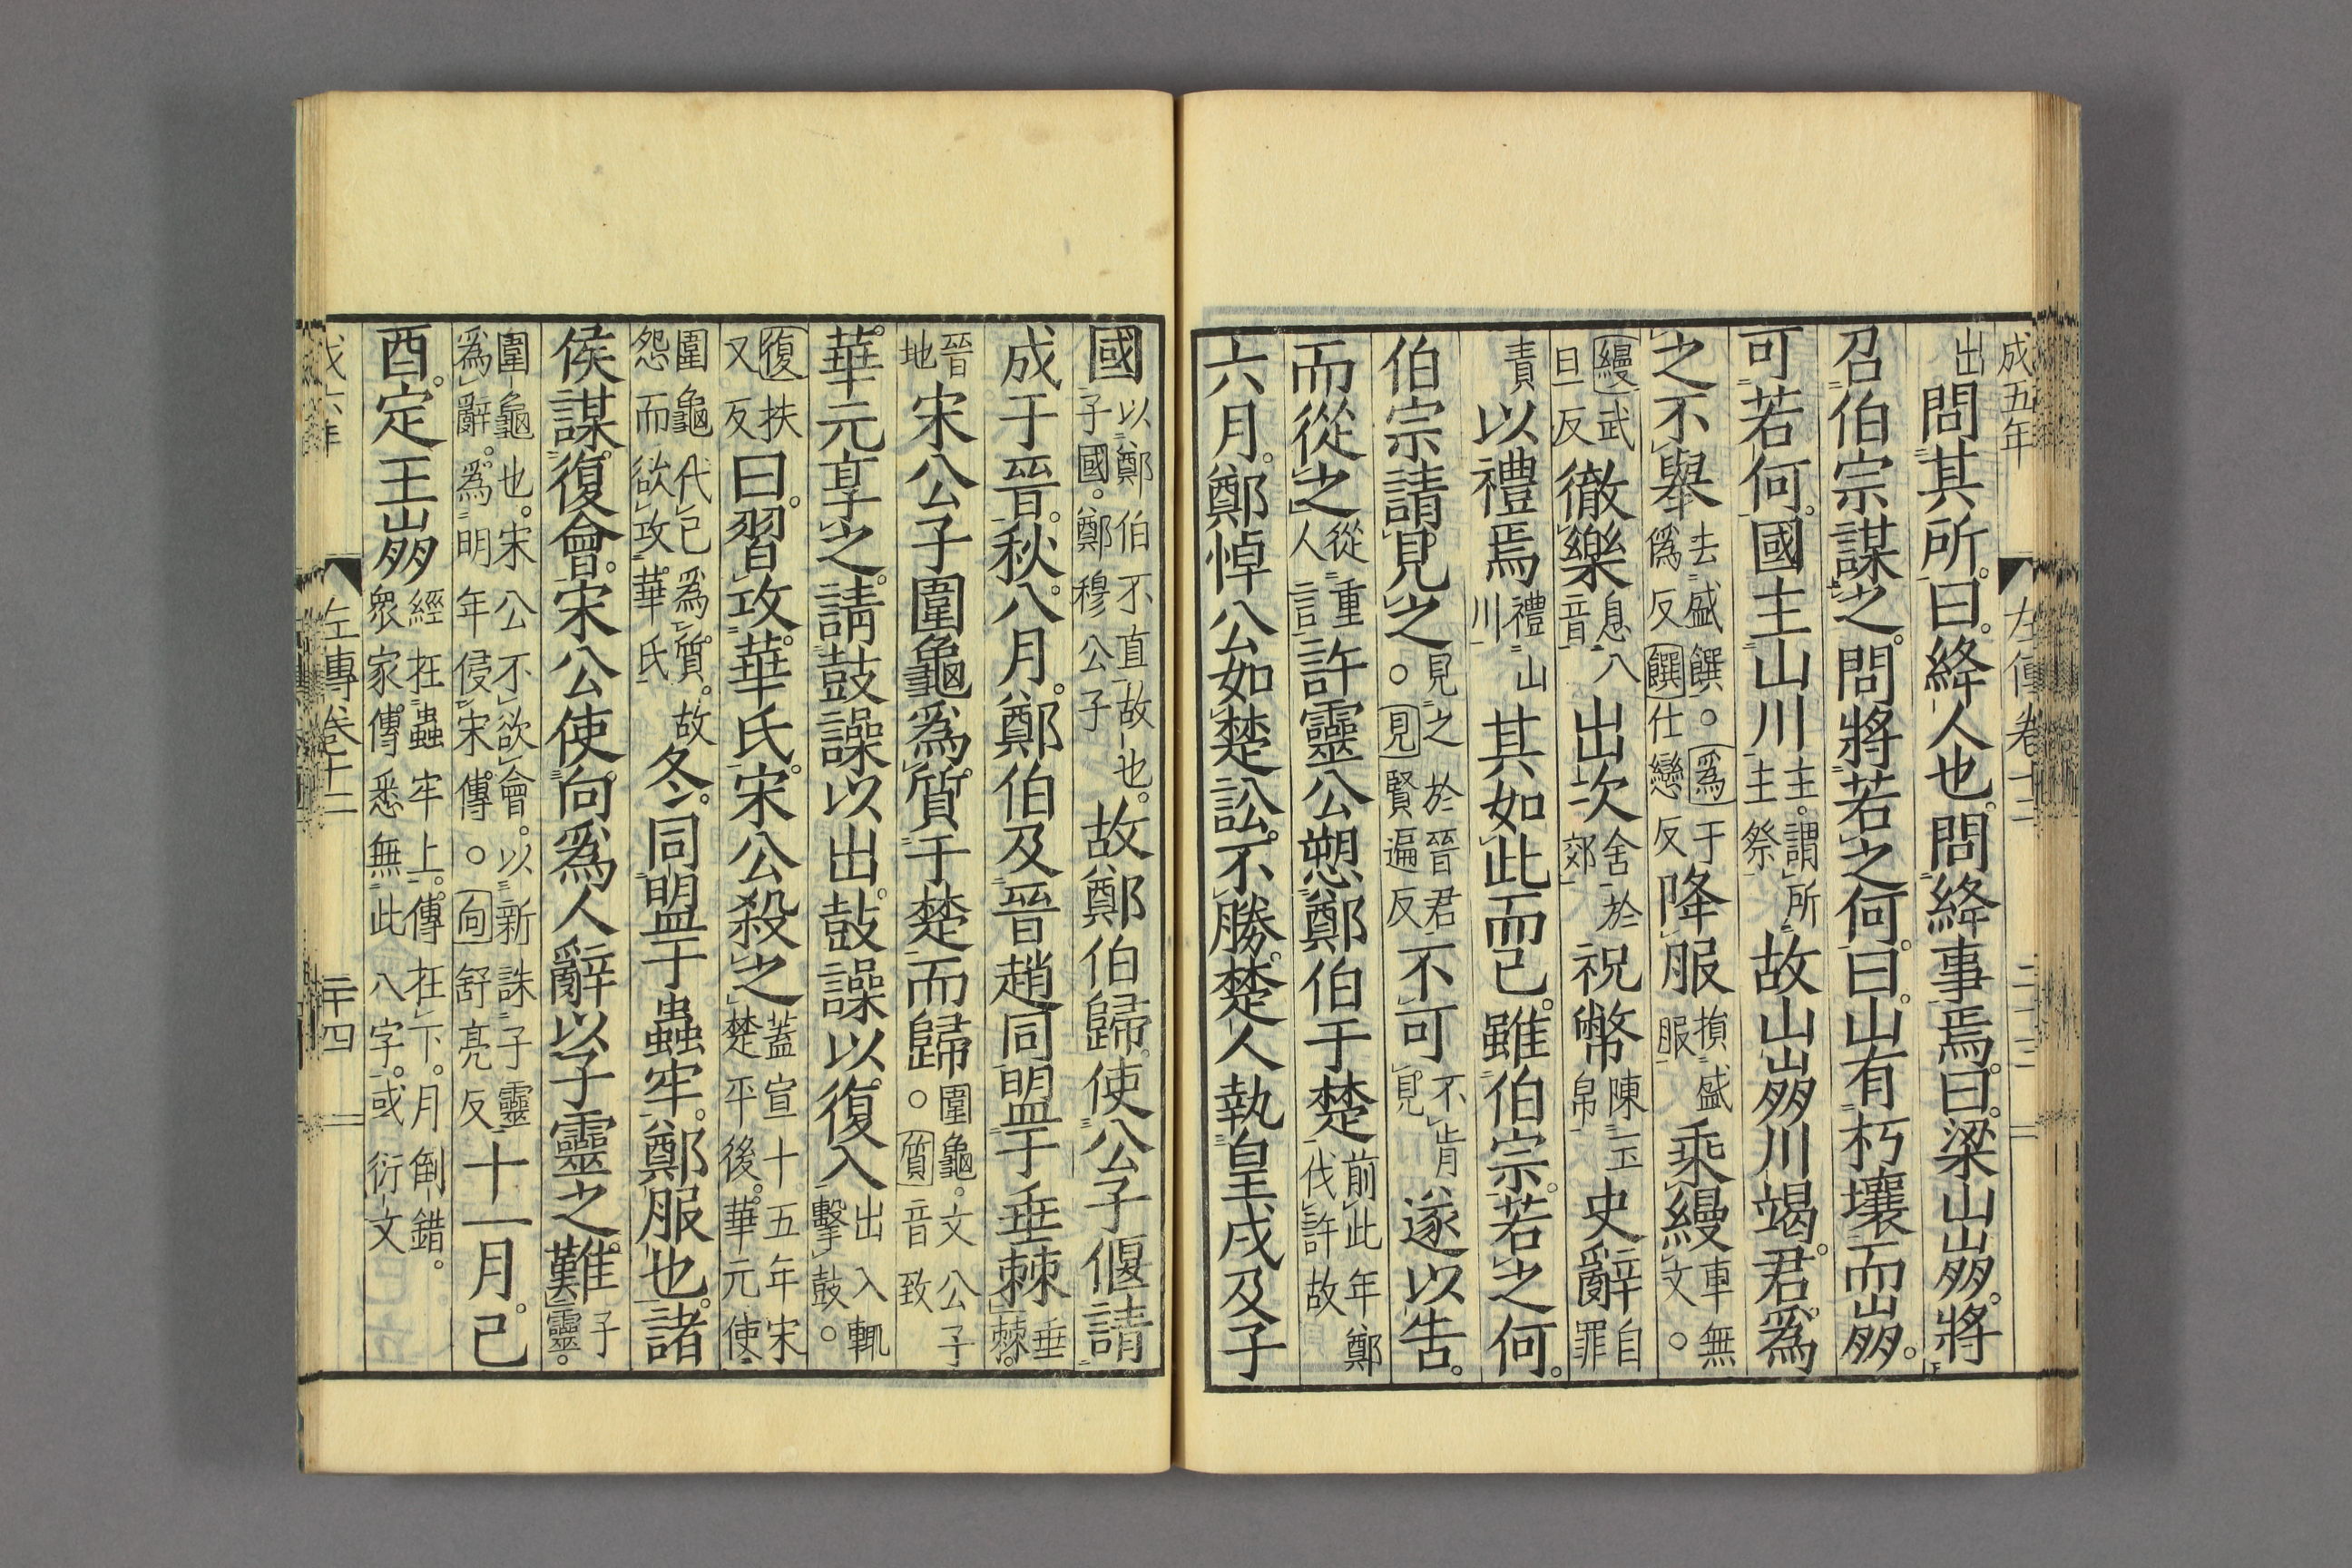 成五年 左傳卷十二 二十三
出問其所曰絳人也問絳事焉曰梁山崩將
召伯宗謀之問將若之何曰山有朽壤而崩
可若何國主山川主謂所主祭故山崩川竭君爲
之不舉去盛饌○爲于僞反饌仕戀反降服損盛服乘縵車無文○
縵武旦反徹樂息八音出次舍於郊祝幣陳玉帛史辭自罪
責以禮焉禮山川其如此而已雖伯宗若之何
伯宗請見之見之於晉君○見賢遍反不可不肯見遂以告
而從之從重人言許靈公愬鄭伯于楚前此年鄭伐許故
六月鄭悼公如楚訟不勝楚人執皇戌及子
國以鄭伯不直故也子國鄭穆公子故鄭伯歸使公子偃請
成于晉秋八月鄭伯及晉趙同盟于垂棘垂棘
晉地宋公子圍龜爲質于楚而歸圍龜文公子○質音致
華元享之請鼓譟以出鼓譟以復入出入輒擊鼓○
復扶又反曰習攻華氏宋公殺之蓋宣十五年宋楚平後華元使
圍龜代己爲質故怨而欲攻華氏冬同盟于蟲牢鄭服也諸
侯謀復會宋公使向爲人辭以子靈之難子靈
圍龜也宋公不欲會以新誅子靈爲辭爲明年侵宋傳○向舒亮反十一月己
酉定王崩經在蟲牢上傳在下月倒錯衆家傳悉無此八字或衍文
成六年 左傳卷十二 二十四